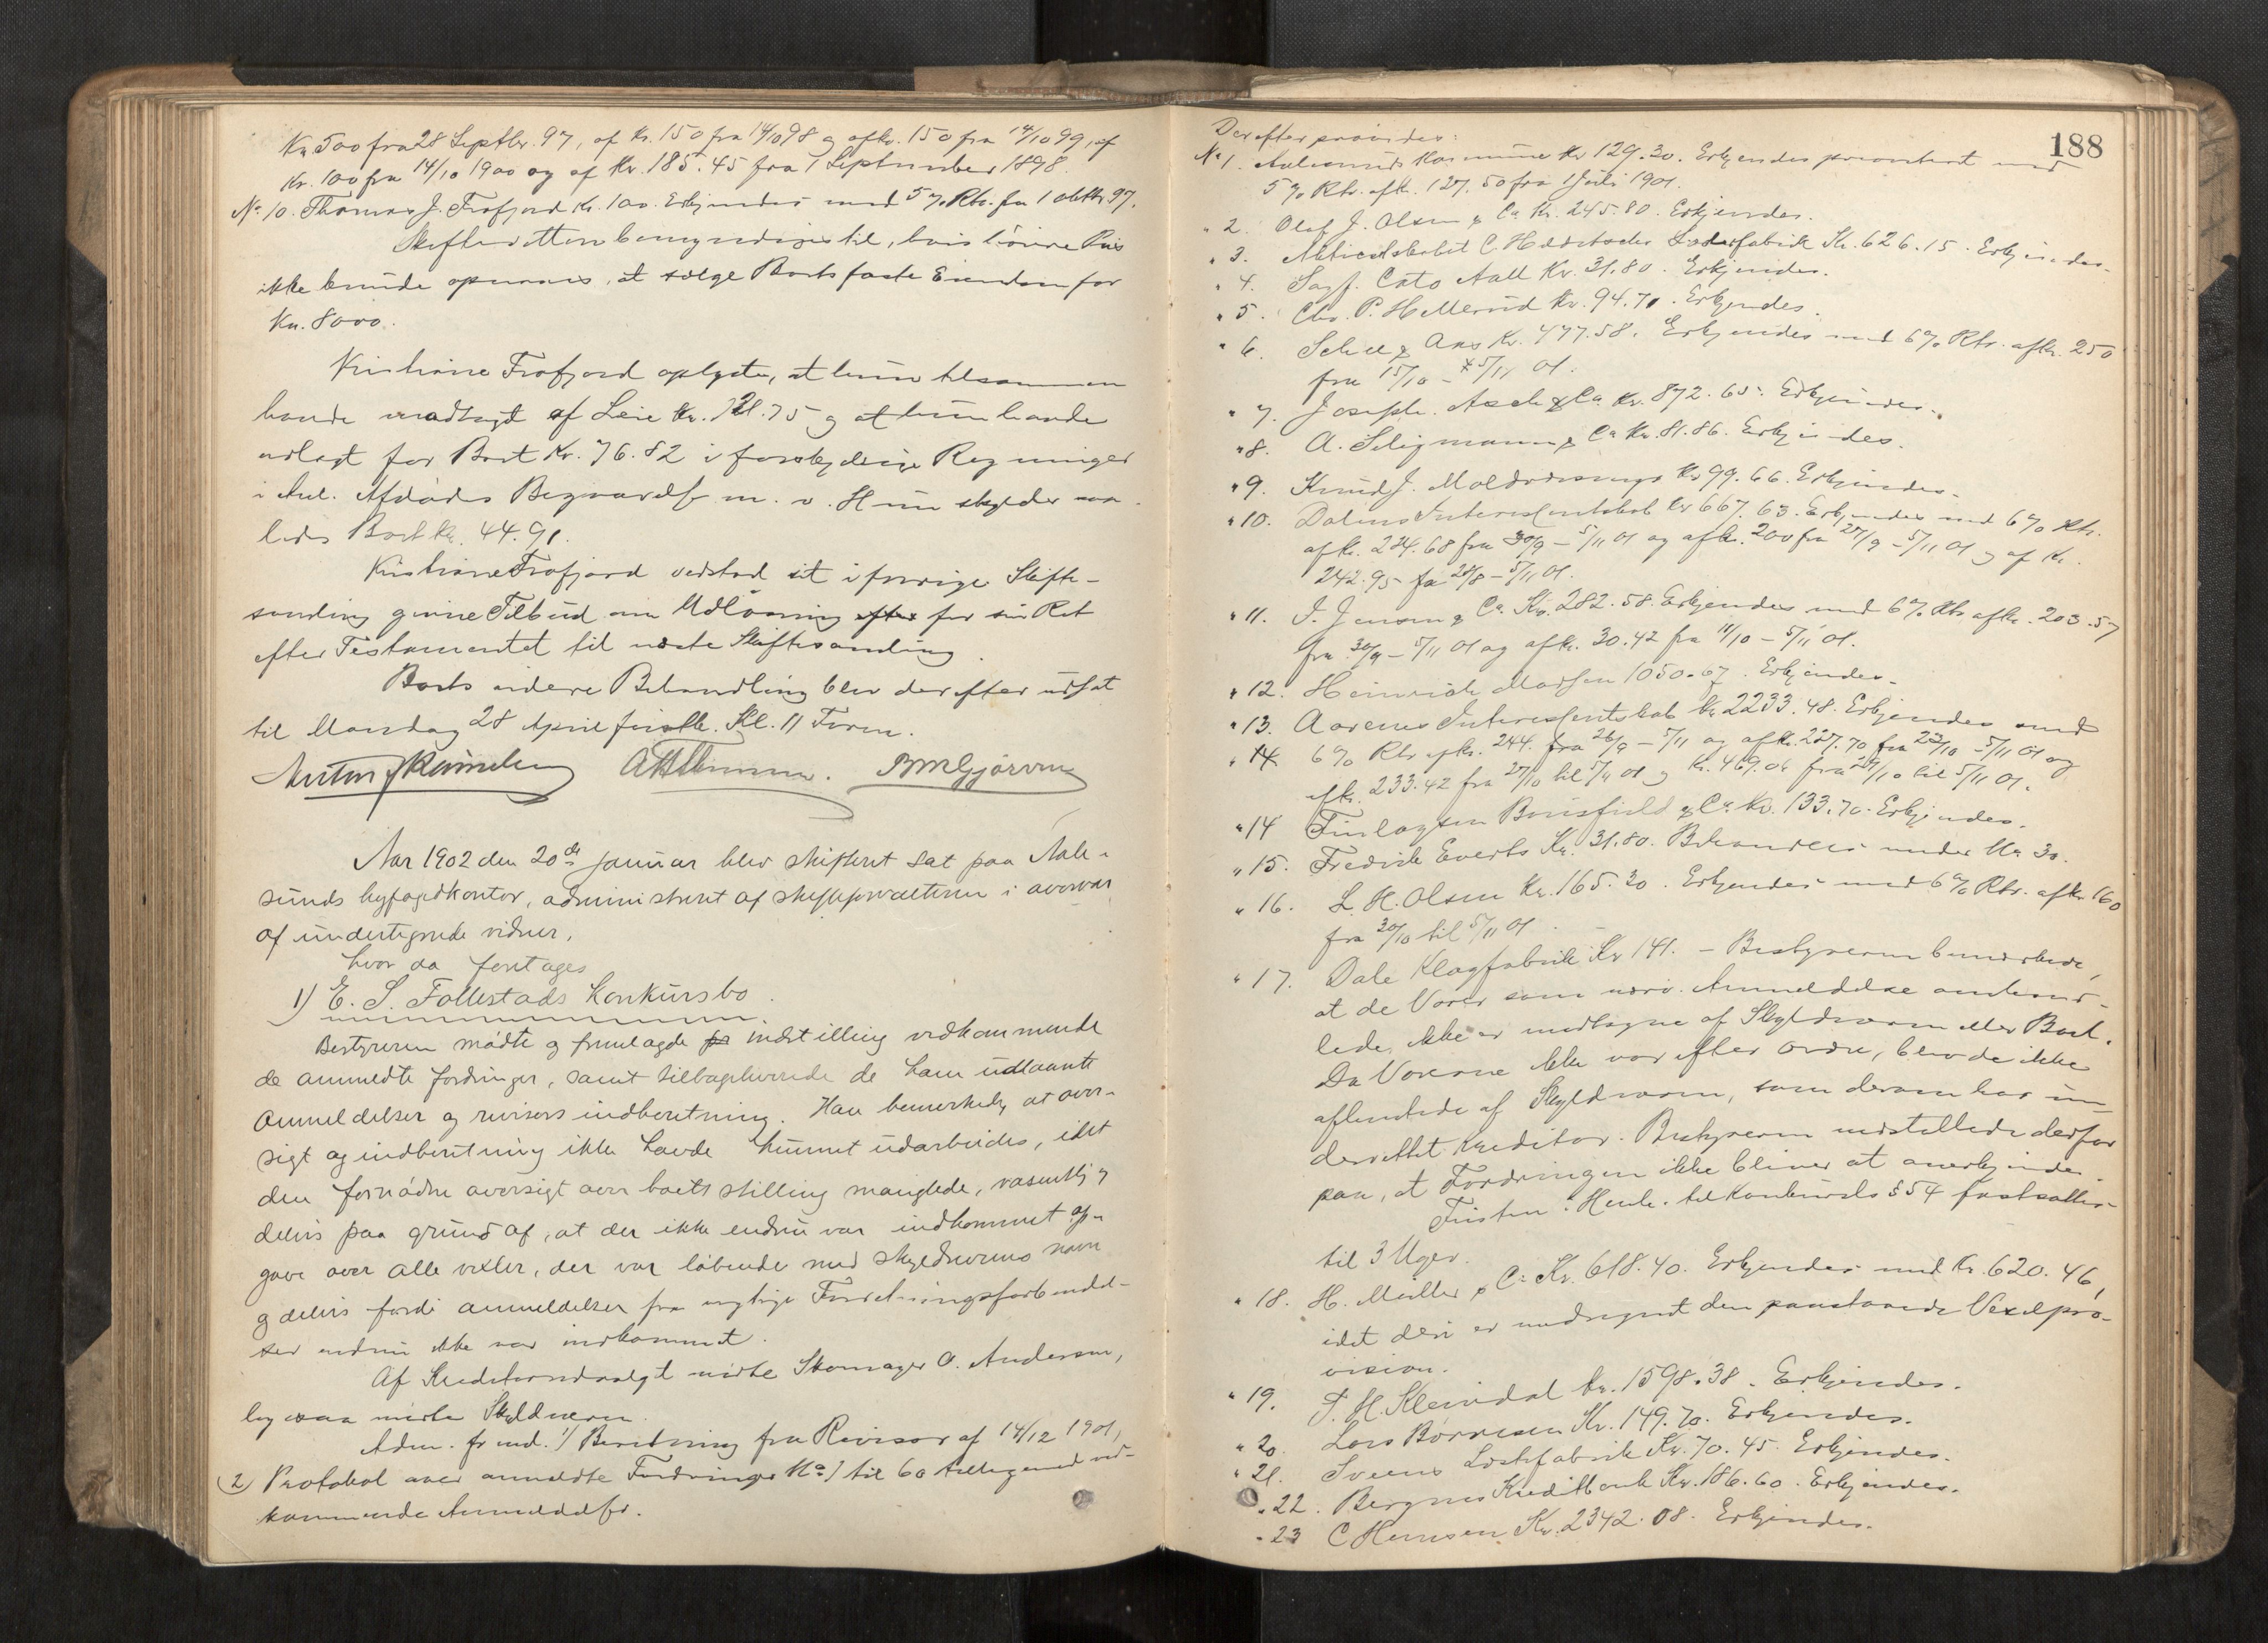 Kr. 500 fra 28 Septbr. 97, af Kr. 150 fra 14/10 98 og af Kr. 150 fra 14/10 99, af
Kr. 100 fra 14/10 1900 og af Kr. 185.45 fra 1 September 1898.
No 10. Thomas J. Frafjord Kr. 100. Erkjendes med 5 % Rtr. fra 1 oktbr 97.
Skifteretten bemyndiges til, hvis høiere Pris
ikke kunde opnaaes, at sælge Boets faste Eiendom for
Kr. 8000.
Kristiane Frafjord oplyste, at hun tilsammen
havde modtaget af Leie Kr. 121.75 og at hun havde
udlagt for Boet Kr. 76.82 i forskjellige Regninger
i Anl. Afdødes Begravelse m. v. Hun skylder saa-
ledes Boet Kr. 44.91.
Kristiane Frafjord vedstod sit i forrige Skifte-
samling givne Tilbud om Udløsning efter for sin Ret
efter Testamentet til næste Skiftesamling.
Boets videre Behandling blev derefter udsat
til Mandag 28 April førstk. Kl. 11 Form.
Aar 1902 den 20de januar blev skifteret sat paa Aale-
sunds byfogedkontor, administreret af skifteforvalteren i overvær
af undertegnede vidner,
hvor da foretages
1) E. S. Follestads konkursbo.
Bestyreren mødte og fremlagde for indstilling vedkommende
de anmeldte fordringer, samt tilbageleverede de ham udlaante
anmeldelser og revisors indberetning. Han bemerkede, at over-
sigt og indberetning ikke havde kunnet udarbeides, idet
den fornødne oversigt over boets stilling manglede, væsentlig
delvis paa grund af, at der ikke endnu var indkommet op-
gave over alle vexler, der var løbende med skyldnerens navn
og delvis fordi anmeldelser fra vigtige Forretningsforbindel-
ser endnu ikke var indkommet.
Af Kreditorudvalget mødte Skomager O. Andersen,
ligesaa mødte Skyldneren.
Adm. freml. 1) Beretning fra Revisor af 14/12 1901,
2) Protokol over anmeldte Fordringer No 1 til 60 tilligemed ved-
kommende Anmeldelser.
188
Derefter prøvedes:
No 1. Aalesunds Kommune Kr 129.30. Erkjendes prioriteret med
5 % Rtr. af Kr. 127.50 fra 1 Juli 1901.
" 2. Olaf J. Olsen & Co Kr. 245.80. Erkjendes.
" 3. Aktieselskabet C. Læderfabrik Kr. 626.15. Erkjendes.
" 4. Sagf. Cato Aall Kr. 31.80. Erkjendes.
" 5. Chr. P. Hellerud Kr. 94.70. Erkjendes.
" 6. & Aas Kr. 477.58. Erkjendes med 6 % Rtr. af Kr. 250
fra 15/10 - 5/11 01.
" 7. Joseph & Co. Kr. 872.65. Erkjendes.
" 8. A. Seligmann & Co Kr. 81.86. Erkjendes.
" 9. Knud J. Kr 99.66. Erkjendes.
" 10. Dalens Interessentskab Kr 667.63. Erkjendes med 6 % Rtr.
af Kr. 224.68 fra 30/9 - 5/11 01 og af Kr. 200 fra 27/9 - 5/11 01 og af Kr.
242.95 fra 28/8 - 5/11 01.
" 11. J. Jensen & Co. Kr. 282.58. Erkjendes med 6 % Rtr. af Kr. 203.57
fra 30/9 - 5/11 01 og af Kr. 30.42 fra 11/10 - 5/11 01.
" 12. Heinrich Madsen 1050.67. Erkjendes.
" 13. Aarenes Interessentskab Kr 2233.48. Erkjendes med
" 14 6 % Rtr af Kr. 244. fra 26/9 - 5/11 og af Kr. 227.70 fra 22/10 - 5/11 01 og
af Kr. 233.42 fra 27/10 til 5/11 01 og Kr. 469.06 fra 29/10 til 5/11 01.
" 14 Finlayson Bousfield & Co. Kr. 133.70. Erkjendes.
" 15. Fredrik Everts Kr. 31.80. Behandles under No 30.
" 16. L. H. Olsen Kr. 165.30. Erkjendes med 6 % Rtr. af Kr. 160
fra 20/10 til 5/11 01.
" 17. Dale Klagfabrik Kr 141. - Bestyreren bemerkede,
at de Varer som nærv. Anmeldelse omhand-
lede, ikke er modtagne af Skyldneren eller Boet.
Da Varerne ikke var efter ordre, blev de ikke
afhentede af Skyldneren, som derom har un-
derrettet Kreditor. Bestyreren indstillede derfor
paa, at Fordringen ikke bliver at anerkjende.
Fristen i Henh. til Konkursl. § 54 fastsattes
til 3 Uger.
" 18. H. Møller & Co. Kr. 618.40. Erkjendes med Kr. 620.46,
idet deri er medregnet den paastaaede Vexelpro-
vision.
" 19. J. H. Kleivdal Kr. 1598.38. Erkjendes.
" 20. Lars Børresen Kr. 149.70. Erkjendes.
" 21. Sveens Læstfabrik Kr. 70.45. Erkjendes.
" 22. Bergens Kreditbank Kr. 186.60. Erkjendes.
" 23 C Hermsen Kr. 2342.08. Erkjendes.